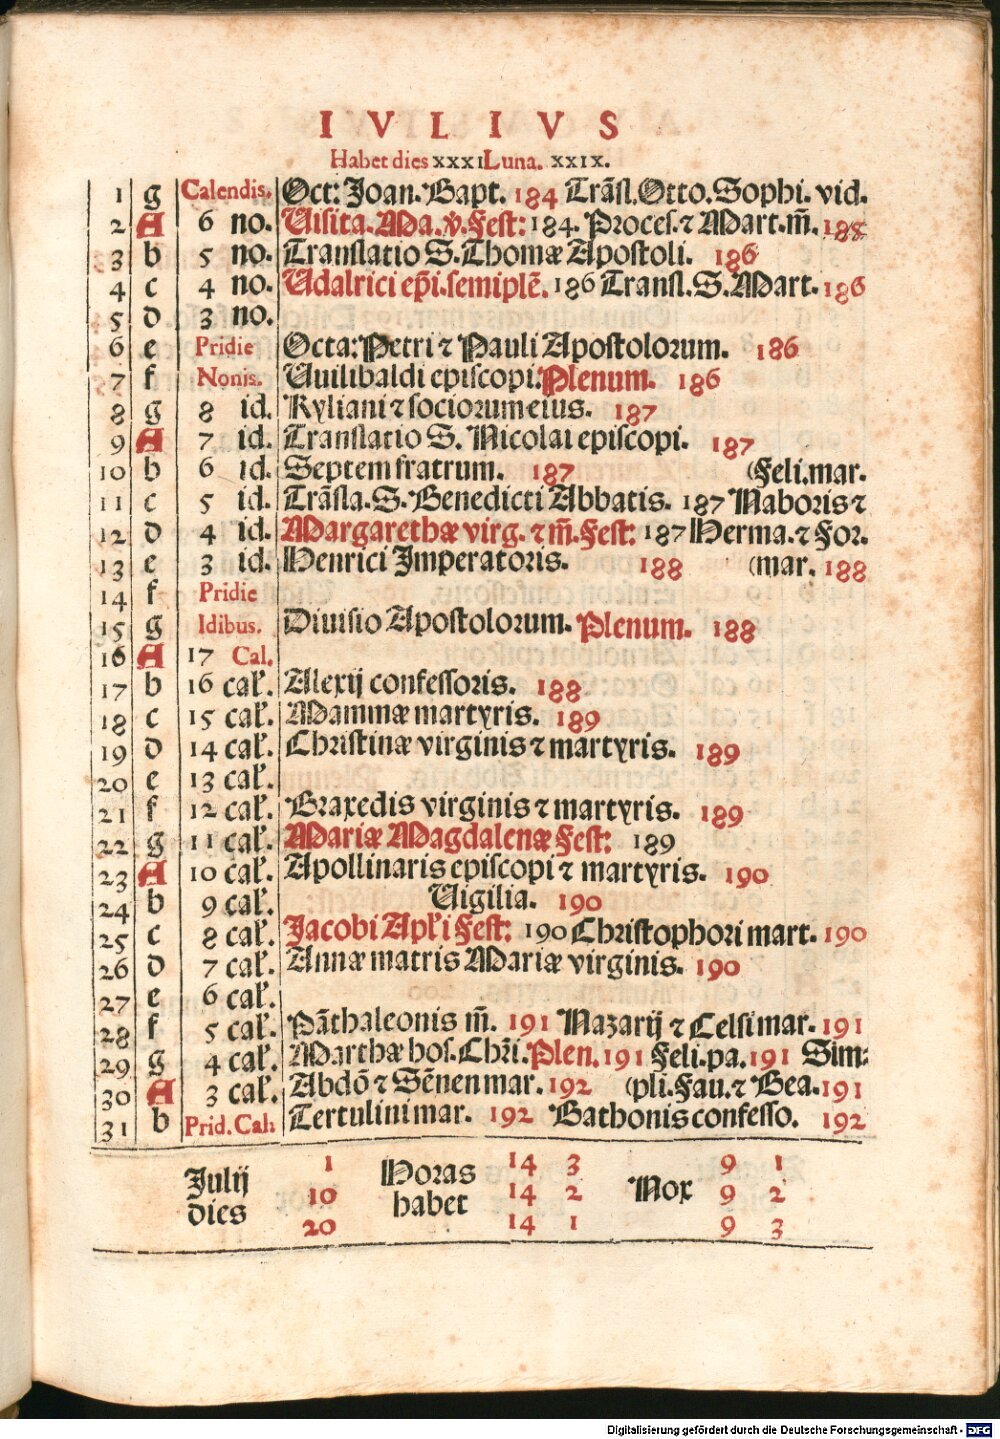 IVLIVS
Habet dies XXXI Luna. XXIX.
1 g Calendis. Oct: Joan. Bapt. 184 Trāsl. Otto. Sophi. vid.
2 A 6 no. Uisita. Ma. v. Fest: 184. Proces. ⁊ Mart. m̄. 188
3 b 5 no. Translatio S. Thomæ Apostoli. 186
4 c 4 no. Udalrici ep̄i. semiplē. 186 Transl. S. Mart. 186
5 d 3 no.
6 e Pridie Octa: Petri ⁊ Pauli Apostolorum. 186
7 f Nonis. Vuilibaldi episcopi. Plenum. 186
8 g 8 id. Kyliani ⁊ sociorum eius. 187
9 A 7 id. Translatio S. Nicolai episcopi. 187
10 b 6 id. Septem fratrum. 187 (Feli. mar.
11 c 5 id. Trāsla. S. Benedicti Abbatis. 187 Naboris ⁊
12 d 4 id. Margarethæ virg. ⁊ m̄. Fest: 187 Herma. ⁊ For.
13 e 3 id. Henrici Imperatoris. 188 (mar. 188
14 f Pridie
15 g Idibus. Diuisio Apostolorum. Plenum. 188
16 A 17 Cal.
17 b 16 cal. Alexij confessoris. 188
18 c 15 cal. Mammæ martyris. 189
19 d 14 cal. Christinæ virginis ⁊ martyris. 189
20 e 13 cal.
21 f 12 cal. Braxedis virginis ⁊ martyris. 189
22 g 11 cal. Mariæ Magdalenæ Fest: 189
23 A 10 cal. Apollinaris episcopi ⁊ martyris. 190
24 b 9 cal. Uigilia. 190
25 c 8 cal. Jacobi Apľi Fest: 190 Christophori mart. 190
26 d 7 cal. Annæ matris Mariæ virginis. 190
27 e 6 cal.
28 f 5 cal. Pāthaleonis m̄. 191 Nazarij ⁊ Celsi mar. 191
29 g 4 cal. Marthæ hos. Chr̄i. Plen. 191 Feli. pa. 191 Sim:
30 A 3 cal. Abdō ⁊ Sēnen mar. 192 (pli. Fau. ⁊ Bea. 191
31 b Prid. Cal. Tertulini mar. 192 Bathonis confesso. 192
Julij dies 1 Horas habet 14 3 Nox 9 1
10 14 2 9 2
20 14 1 9 3
Digitalisierung gefördert durch die Deutsche Forschungsgemeinschaft - DFG